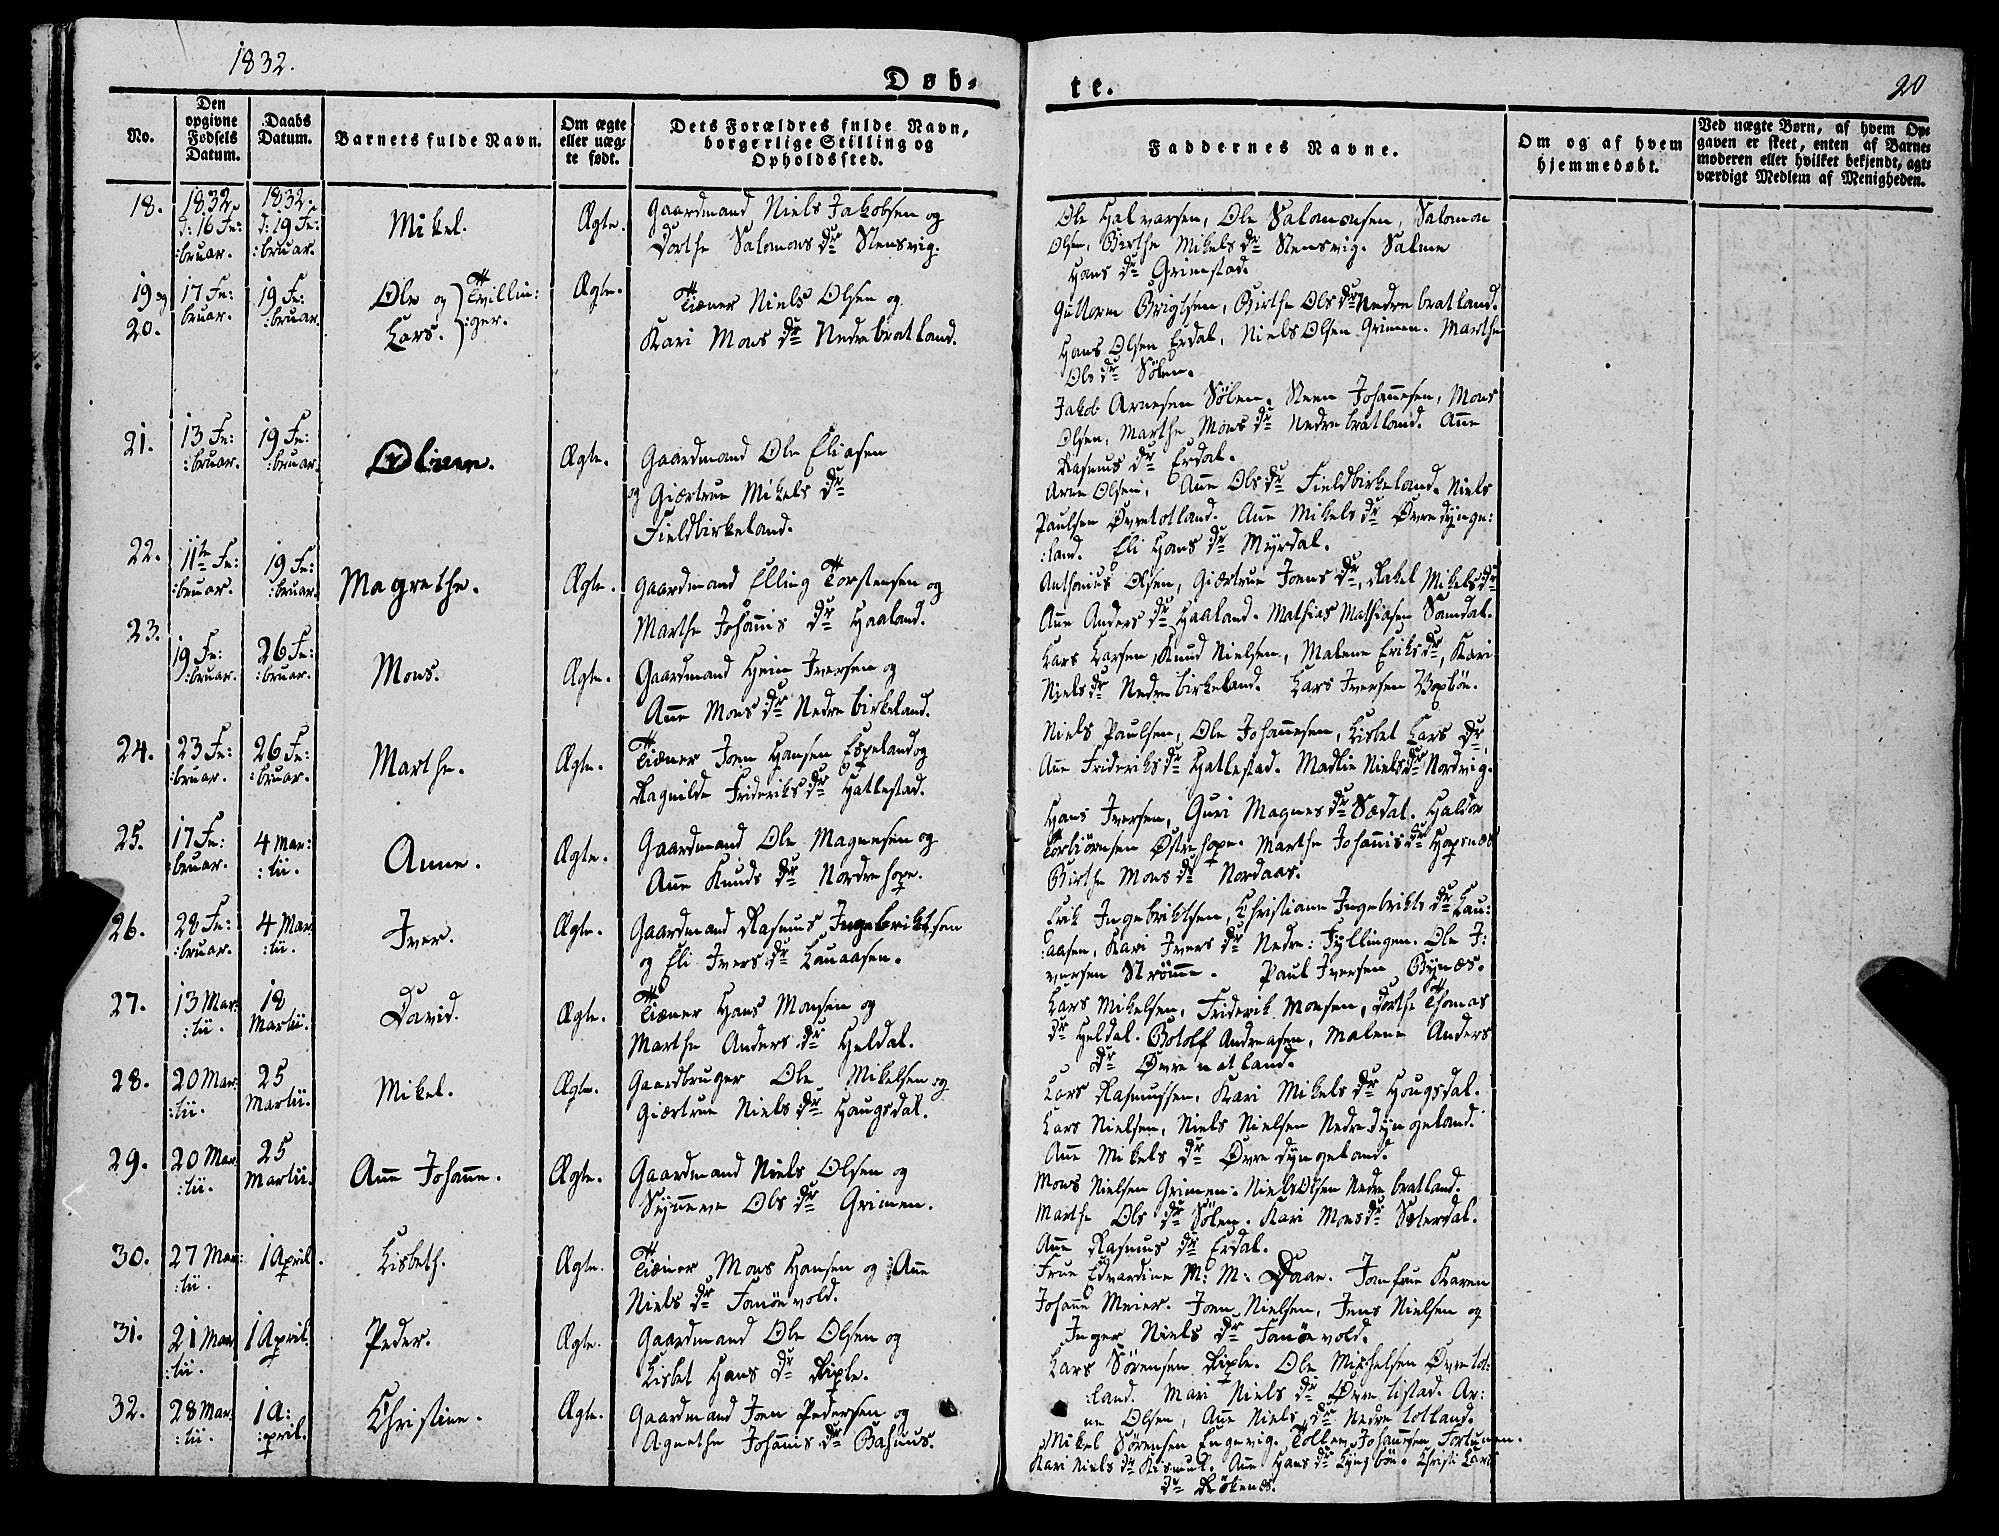 1832.
Døb-
te.
20
No.
Den
opgivne
Fødsels
Datum.
Daabs
Datum.
Barnets fulde Navn.
Om ægte
eller uæg-
te født.
Dets Forældres fulde Navn,
borgerlige Stilling og
Opholdssted.
Faddernes Navne.
Om og af hvem
hjemmedøbt.
Ved uægte Børn, af hvem Op-
gaven er skeet, enten af Barne-
moderen eller hvilket bekjendt, agt-
værdigt Medlem af Menigheden.
18.
1832.
d: 16 Fe:
:bruar.
1832.
d: 19 Fe:
:bruar.
Mikel.
Ægte.
Gaardmand Niels Jakobsen og
Dorthe Salomons dr Stensvig.
Ole Halvarsen, Ole Salomonsen, Salomon
Olsen, Birthe Mikels dr Stensvig. Salme
Hans dr Grimstad.
19 og
20.
17 Fe:
bruar.
19 Fe:
:bruar.
Ole og } Tvillin:
Lars. } :ger.
Ægte.
Tiæner Niels Olsen og
Kari Mons dr Nedre bratland.
Guttorm Brigtsen, Birthe Ols dr Nedre bratland.
Hans Olsen Erdal, Niels Olsen Grimen. Marthe
Ols dr Sølen.
Jakob Arnesen Sølen. Steen Johannesen, Mons
Olsen, Marthe Mons dr Nedre bratland. Anne
Rasmus dr Erdal.
21.
13 Fe:
:bruar.
19 Fe:
:bruar.
Oliver.
Ægte.
Gaardmand Ole Eliasen
og Giærtrue Mikels dr
Fieldbirkeland.
Arne Olsen, Anne Ols dr Fieldbirkeland. Niels
Paulsen Øvretotland. Anne Mikels dr Øvre dynge:
:land. Eli Hans dr Myrdal.
22.
11te Fe:
:bruar.
19 Fe:
:bruar.
Magrethe.
Ægte.
Gaardmand Elling Torstensen og
Marthe Johannis dr Haaland.
Anthonius Olsen, Giærtrue Joens dr, Rakel Mikels dr
Anne Anders dr Haaland. Mathias Mathiasen Samdal.
23.
19 Fe:
:bruar.
26 Fe:
:bruar.
Mons.
Ægte.
Gaardmand Hein Iversen og
Anne Mons dr Nedre birkeland.
Lars Larsen, Knud Nielsen, Malene Eriks dr, Kari
Niels dr Nedre birkeland. Lars Iversen
24.
23 Fe:
:bruar.
26 Fe:
:bruar.
Marthe.
Ægte.
Tiæner Joen Hansen Espeland og
Ragnilde Frideriks dr Hatlestad.
Niels Paulsen, Ole Johannesen, Lisbet Lars dr,
Anne Frideriks dr Hatlestad. Madlie Niels dr Nordvig.
25.
17 Fe:
:bruar.
4 Mar:
:tii.
Anne.
Ægte.
Gaardmand Ole Magnesen og
Anne Knuds dr Nordre hope.
Hans Iversen, Guri Magnes dr Sædal. Haldor
Torbiørnsen Østre hope. Marthe Johannis dr Hopsnæs
Birthe Mons dr Nordaas.
26.
28 Fe:
:bruar.
4 Mar
:tii.
Iver.
Ægte.
Gaardmand Rasmus Ingebriktsen
og Eli Ivers dr Lauaasen.
Erik Ingebriktsen, Christiane Ingebrikts dr Lau:
:aasen, Kari Ivers dr Nedre: Fyllingen. Ole I:
versen Strømme. Paul Iversen Bynæs.
27.
13 Mar:
:tii.
18
Martii.
David.
Ægte.
Tiæner Hans Monsen og
Marthe Anders dr Heldal.
Lars Mikelsen, Friderik Monsen, Dorthe Thomas
dr Heldal. Botolf Andreasen, Malene Anders
dr Øvre natland.
28.
20 Mar:
:tii.
25
Martii.
Mikel.
Ægte.
Gaardbruger Ole Mikelsen og
Giærtrue Niels dr Hougsdal.
Lars Rasmussen, Kari Mikels dr Hougsdal.
Lars Nielsen, Niels Nielsen Nedre dyngeland.
Anne Mikels dr Øvre dyngeland.
29.
20 Mar:
:tii.
25
Martii.
Anne Johanne.
Ægte.
Gaardmand Niels Olsen og
Synneve Ols dr Grimen.
Mons Nielsen Grimen. Niels Olsen Nedre bratland.
Marthe Ols dr Sølen. Kari Mons dr Sæterdal.
Anne Rasmus dr Erdal.
30.
27 Mar:
:tii.
1 April.
Lisbeth.
Ægte.
Tiæner Mons Hansen og Anne
Niels dr Tømøevold.
Frue Edvardine M: M: Daae. Jomfrue Karen
Johanne Meier. Joen Nielsen, Jens Nielsen og
Inger Niels dr Tømøevold.
31.
21 Mar
:tii.
1 April.
Peder.
Ægte.
Gaardmand Ole Olsen og
Lisbet Hans dr Riple.
Lars Sørensen Riple. Ole Mikkelsen Øvre tot:
:land. Mari Niels dr Øvre titlestad. Ar:
ne Olsen, Anne Niels dr Nedre totland.
32.
28 Mar:
:tii.
1 A:
:pril.
Christine.
Ægte.
Gaardmand Joen Pedersen og
Agnethe Johannis dr Bahuus.
Mikel Sørensen Engevig. Tollev Johannesen Fortunen.
Kari Niels dr Kismul. Anne Hans dr Lyngbøe. Christi Lars
dr Røkenæs.